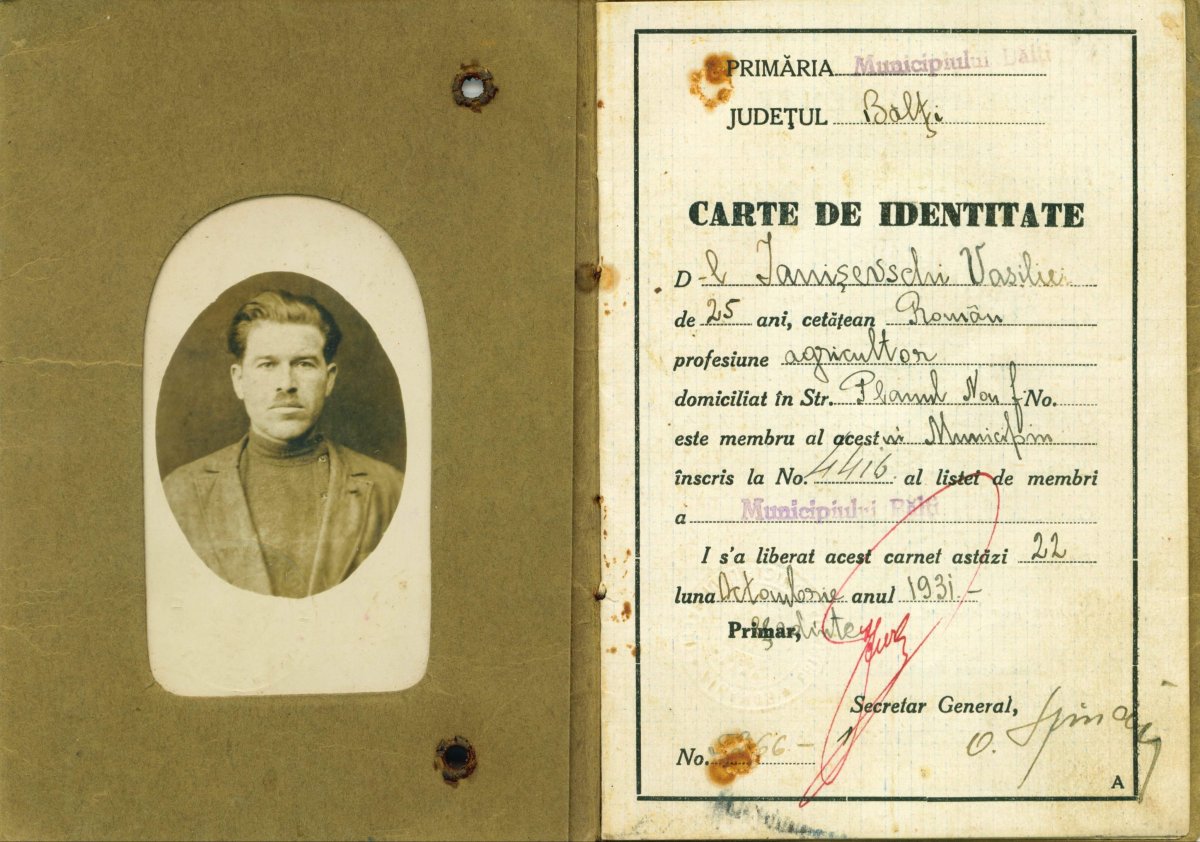 PRIMĂRIA Municipiului Bălți
JUDEŢUL Bălţi
CARTE DE IDENTITATE
D-l Ianişevschi Vasilie
de 25 ani, cetăţean Român
profesiune agricultor
domiciliat în Str. Planul Nou f No.
este membru al acestui Municipiu
înscris la No. 4416 al listei de membri
a Municipiului Bălți
I s'a liberat acest carnet astăzi 22
luna Octombrie anul 1931-
Primar,
Secretar General,
No. 66-
A